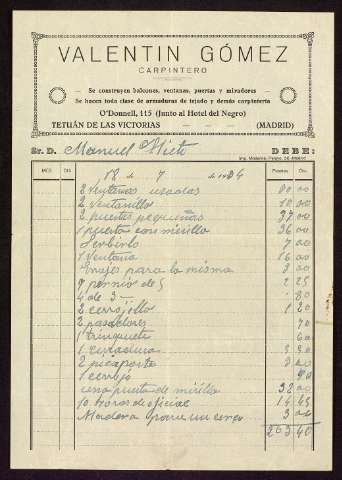 VALENTIN GÓMEZ
CARPINTERO
Se construyen balcones, ventanas, puertas y miradores
Se hacen toda clase de armaduras de tejado y demás carpintería
O'Donnell, 115 (Junto al Hotel del Negro)
TETUÁN DE LAS VICTORIAS - - - (MADRID)
Sr. D. Manuel Nieto DEBE:
MES DIA Pesetas Cts.
18 de 7 de 1934
2 ventanas usadas 20 00
2 ventanillos 10 00
2 puertas pequeñas 37 00
1 puerta con mirilla 36 00
7 00
1 ventana 16 00
para la misma 3 00
9 pernios de 5 2 25
4 de 3 80
2 cerrojillos 1 20
2 pasadores 70
1 trinquete 60
1 cerradura
2 picaporte
1 cerrojo
una puerta de mirilla 32 00
10 horas de oficial 14 45
Madera para un cerco 3 00
263 40